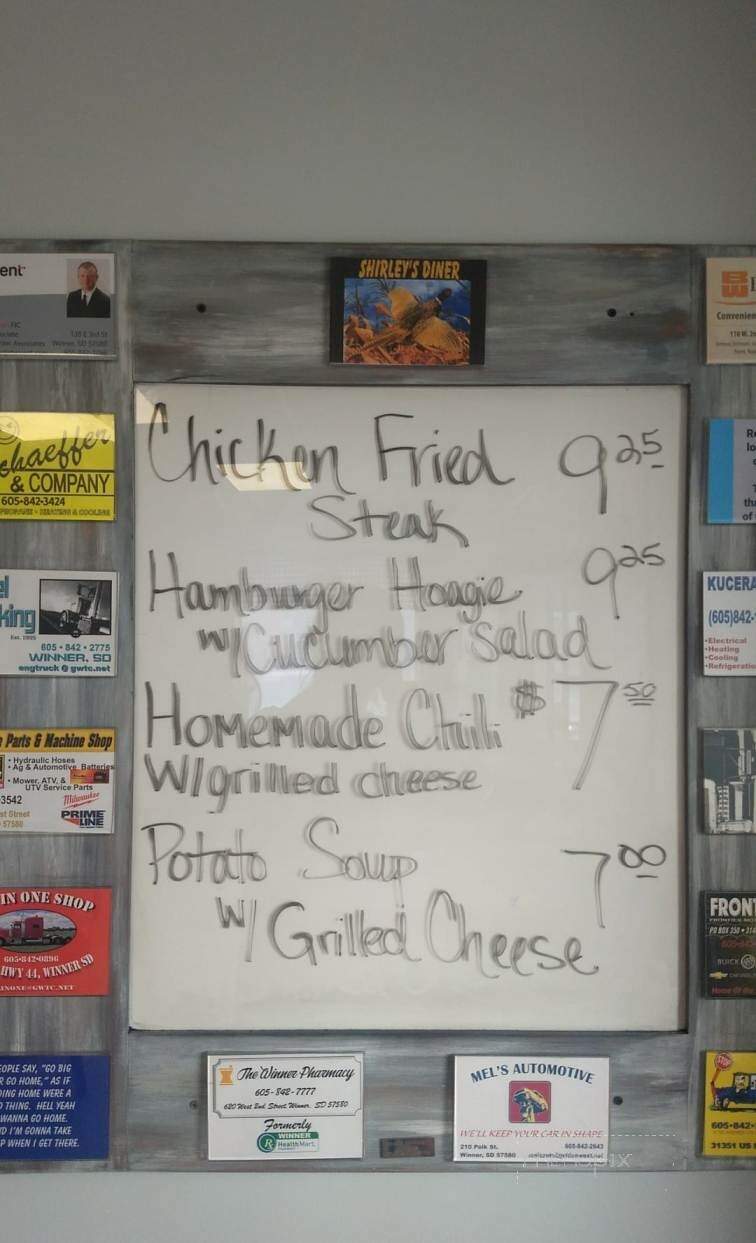 SHIRLEY'S DINER
Chicken Fried 9 25
Steak
Hamburger Hoagie 9 25
w/ Cucumber Salad
Homemade Chili $ 7 50
W/grilled cheese
Potato Soup 7 00
w/ Grilled Cheese
ent
FIC
Winner, SD 57580
chaeffer
& COMPANY
605-842-3424
PROPANE • HEATING & COOLING
el
king
Est. 1995
605 • 842 • 2775
WINNER, SD
engtruck @ gwtc.net
Parts & Machine Shop
• Hydraulic Hoses
• Ag & Automotive Batteries
• Mower, ATV, &
UTV Service Parts
-3542
st Street
57580
Milwaukee
PRIME
LINE
IN ONE SHOP
605-842-0896
HWY 44, WINNER SD
INONE@GWTC.NET
EOPLE SAY, "GO BIG
R GO HOME," AS IF
ING HOME WERE A
THING. HELL YEAH
WANNA GO HOME.
D I'M GONNA TAKE
P WHEN I GET THERE.
The Winner Pharmacy
605-842-7777
620 West 2nd Street Winner, SD 57580
Formerly
WINNER
HealthMart
MEL'S AUTOMOTIVE
WE'LL KEEP YOUR CAR IN SHAPE
210 Polk St.
Winner, SD 57580
605-842-2643
BW
Convenien
R
lo
T
thu
of
KUCERA
(605)842-
•Electrical
•Heating
•Cooling
•Refrigeratio
FRONT
PO BOX 350 • 314
BUICK
605-842-
31351 US